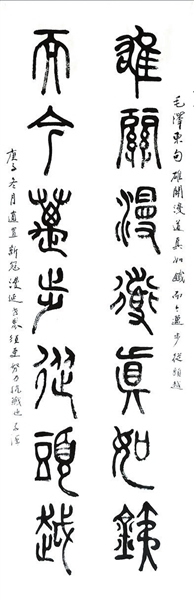 毛澤東句雄關漫道真如鐵而今邁步從頭越
雄關漫道眞如鐵
而今邁步從頭越
庚子冬月適直新冠漫延